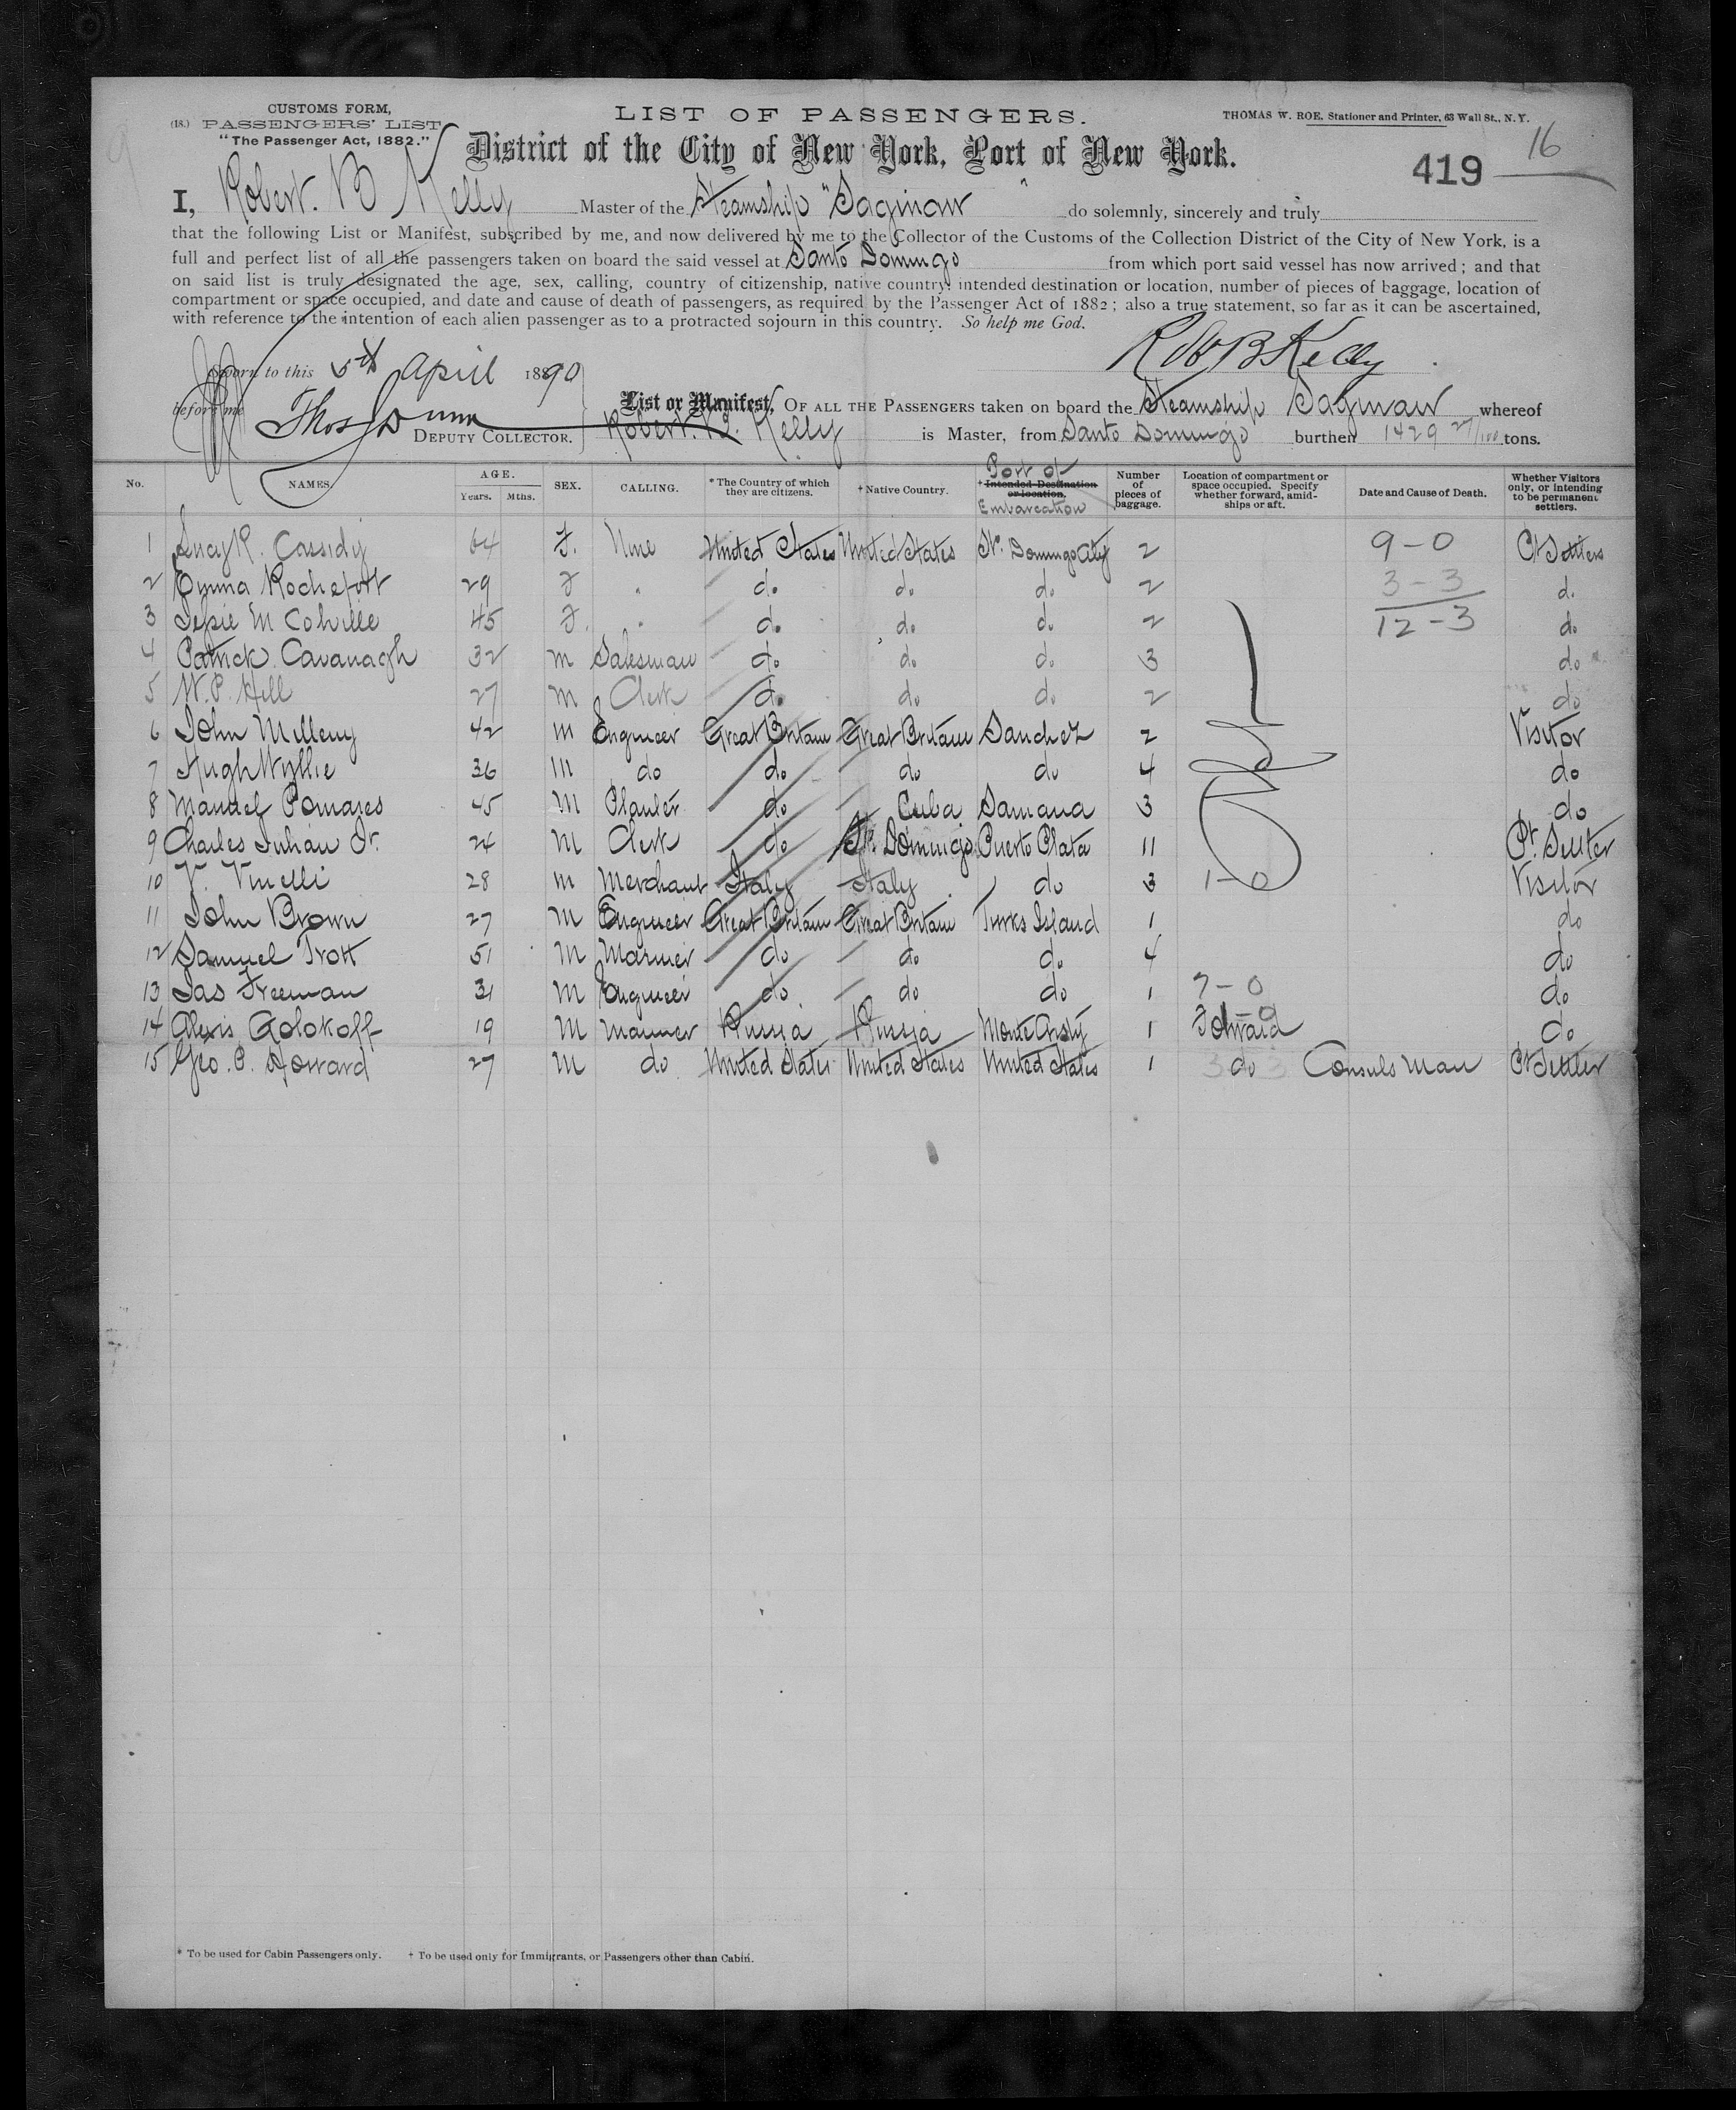 CUSTOMS FORM,
(18.) PASSENGERS' LIST
"The Passenger Act, 1882."
LIST OF PASSENGERS.
THOMAS W. ROE, Stationer and Printer, 63 Wall St., N.Y.
District of the City of New York, Port of New York.
419
16
I, Robert. B Kelly Master of the Steamship "Saginaw" do solemnly, sincerely and truly
that the following List or Manifest, subscribed by me, and now delivered by me to the Collector of the Customs of the Collection District of the City of New York, is a
full and perfect list of all the passengers taken on board the said vessel at Santo Domingo from which port said vessel has now arrived; and that
on said list is truly designated the age, sex, calling, country of citizenship, native country, intended destination or location, number of pieces of baggage, location of
compartment or space occupied, and date and cause of death of passengers, as required by the Passenger Act of 1882; also a true statement, so far as it can be ascertained,
with reference to the intention of each alien passenger as to a protracted sojourn in this country. So help me God.
Robt B Kelly
Sworn to this 5th April 1890
before me Thos Dunn
DEPUTY COLLECTOR.
List or Manifest, OF ALL THE PASSENGERS taken on board the Steamship Saginaw whereof
Robert. B. Kelly is Master, from Santo Domingo burthen 1429 27/100 tons.
No. NAMES. AGE. Years. Mths. SEX. CALLING. * The Country of which they are citizens. † Native Country. † Intended Destination or location. Port of Embarcation Number of pieces of baggage. Location of compartment or space occupied. Specify whether forward, amidships or aft. Date and Cause of Death. Whether Visitors only, or intending to be permanent settlers.
1 Lucy R. Cassidy 64 F. None United States United States St. Domingo City 2 9-0 Pt Settlers
2 Emma Rochefort 29 F " do do do 2 3-3 do
3 Jessie M Colville 45 F. " do do do 2 12-3 do
4 Patrick Cavanagh 32 M Salesman do do do 3 do
5 W. P. Hill 27 M Clerk do do do 2 do
6 John Milleny 42 M Engineer Great Britain Great Britain Sanchez 2 Visitor
7 Hugh Wyllie 36 M do do do do 4 do
8 Manuel Pomares 45 M Planter do Cuba Samana 3 do
9 Charles Julian Jr. 24 M Clerk do St. Domingo Puerto Plata 11 Pt. Settler
10 V. Vinelli 28 M Merchant Italy Italy do 3 1-0 Visitor
11 John Brown 27 M Engineer Great Britain Great Britain Turks Island 1 do
12 Samuel Trott 51 M Mariner do do do 4 do
13 Jas Freeman 31 M Engineer do do do 1 7-0 do
14 Alexis Golokoff 19 M Mariner Russia Russia Monte Cristy 1 Forward do
15 Geo. P. Howard 27 M do United States United States United States 1 do Consuls Man Pt Settler
* To be used for Cabin Passengers only. † To be used only for Immigrants, or Passengers other than Cabin.